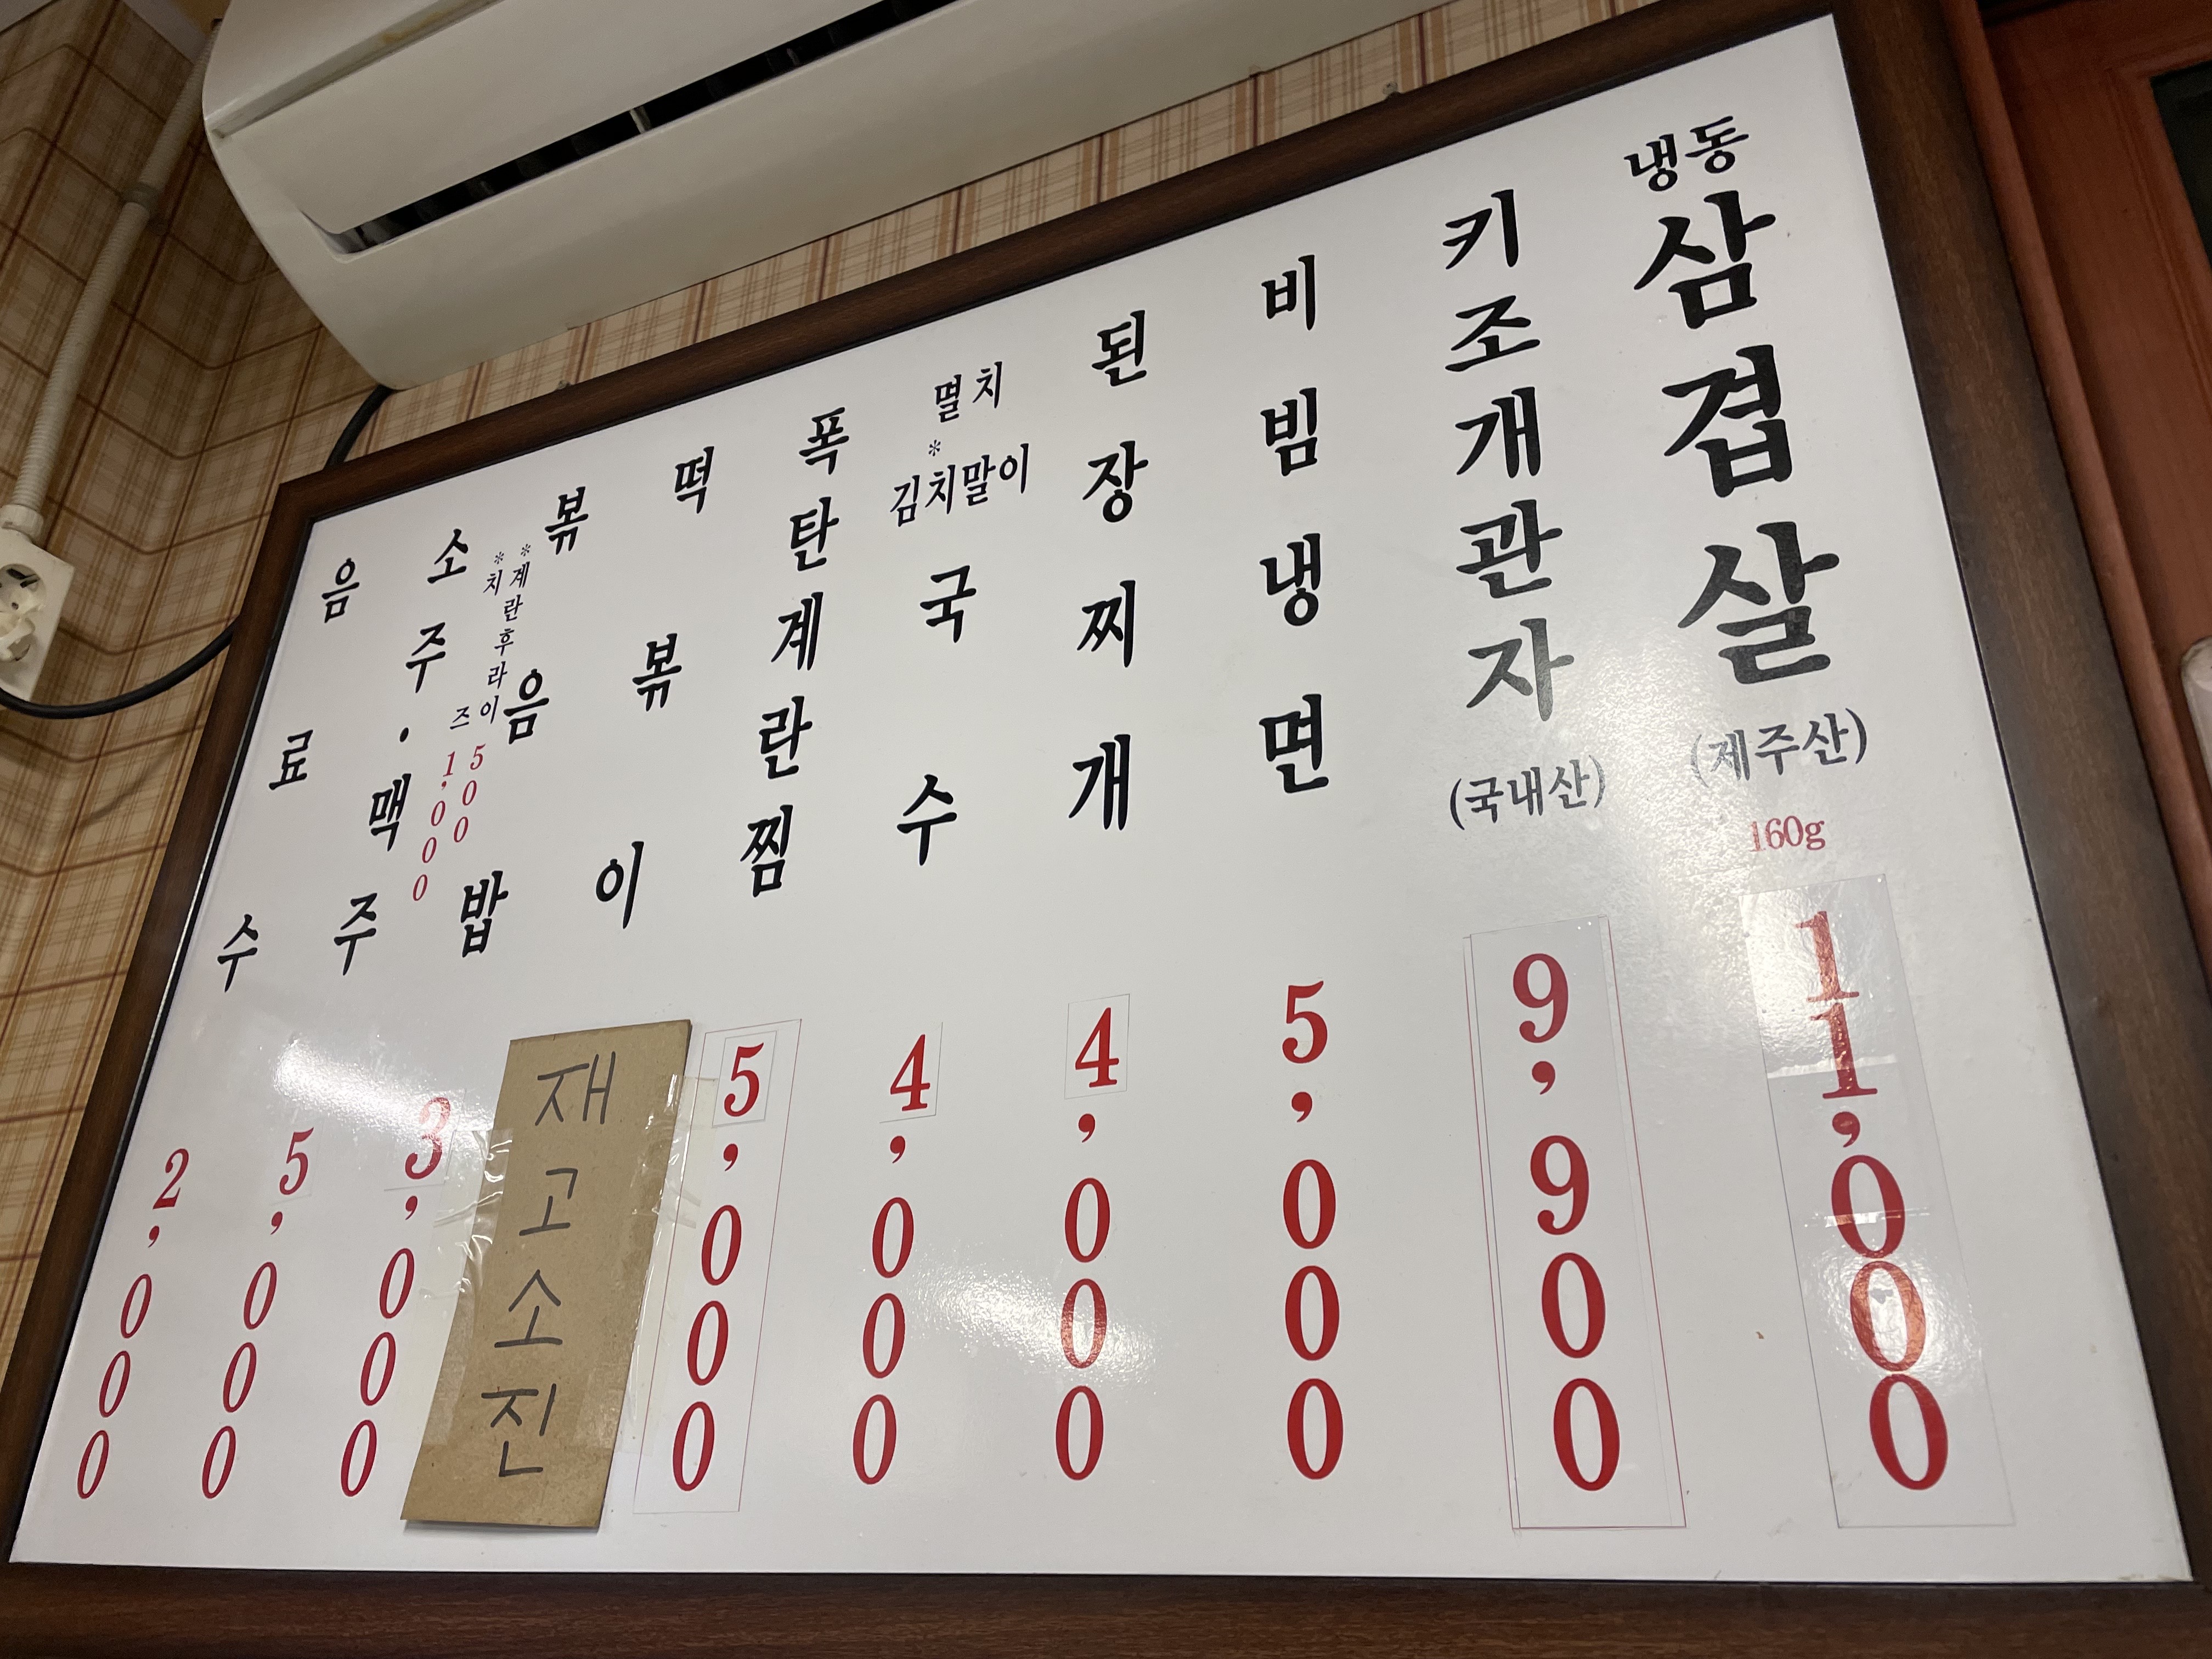 냉동
삼겹살
(제주산)
160g
11,000
키조개관자
(국내산)
9,900
비빔냉면
5,000
된장찌개
4,000
멸치
*
김치말이
국수
4,000
폭탄계란찜
5,000
떡볶이
재고소진
볶음밥
3,000
*계란후라이 500
*치즈 1,000
소주·맥주
5,000
음료수
2,000